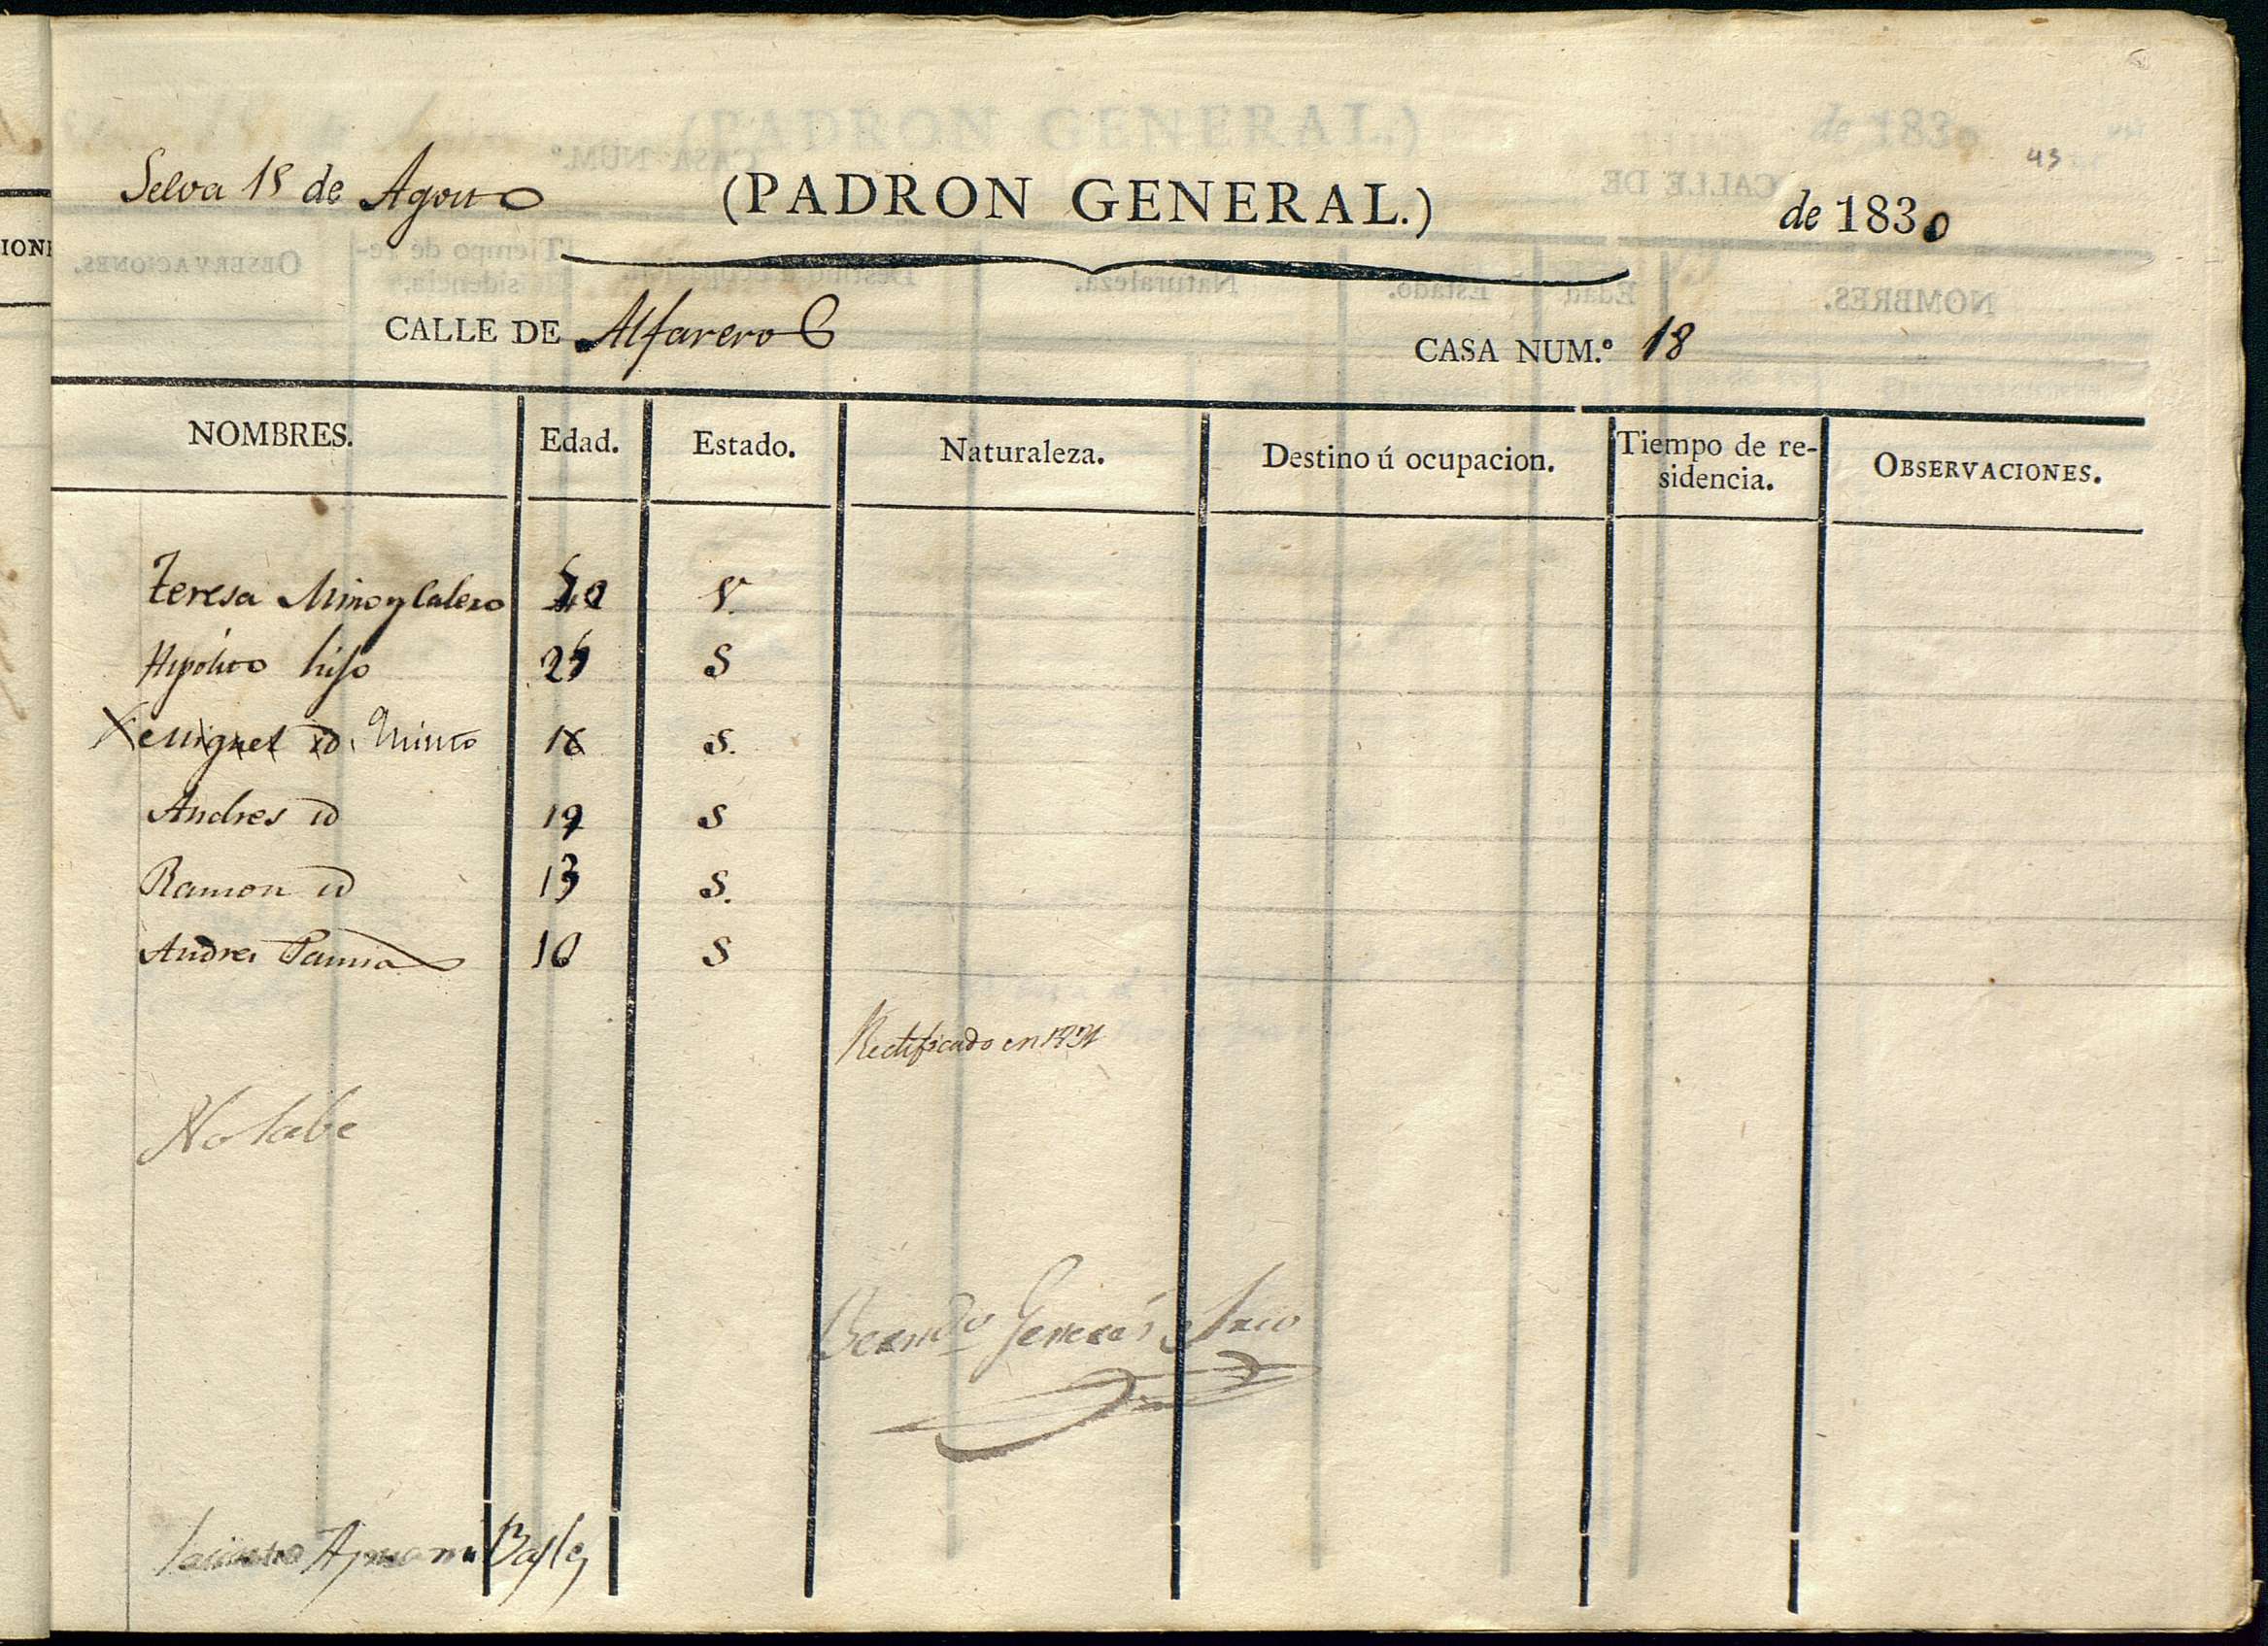 43
Selva 18 de Agosto (PADRON GENERAL.) de 1830
CALLE DE Alfareros CASA NUM.º 18
NOMBRES. Edad. Estado. Naturaleza. Destino ú ocupacion. Tiempo de re-
sidencia. OBSERVACIONES.
Teresa Miro y V.
Hipolito hijo S
Miguel id. Quinto S.
Andres id 19 S
Ramon id 13 S.
Andrea 10 S
Rectificado en 1831
No sabe
Berndo
Bayle